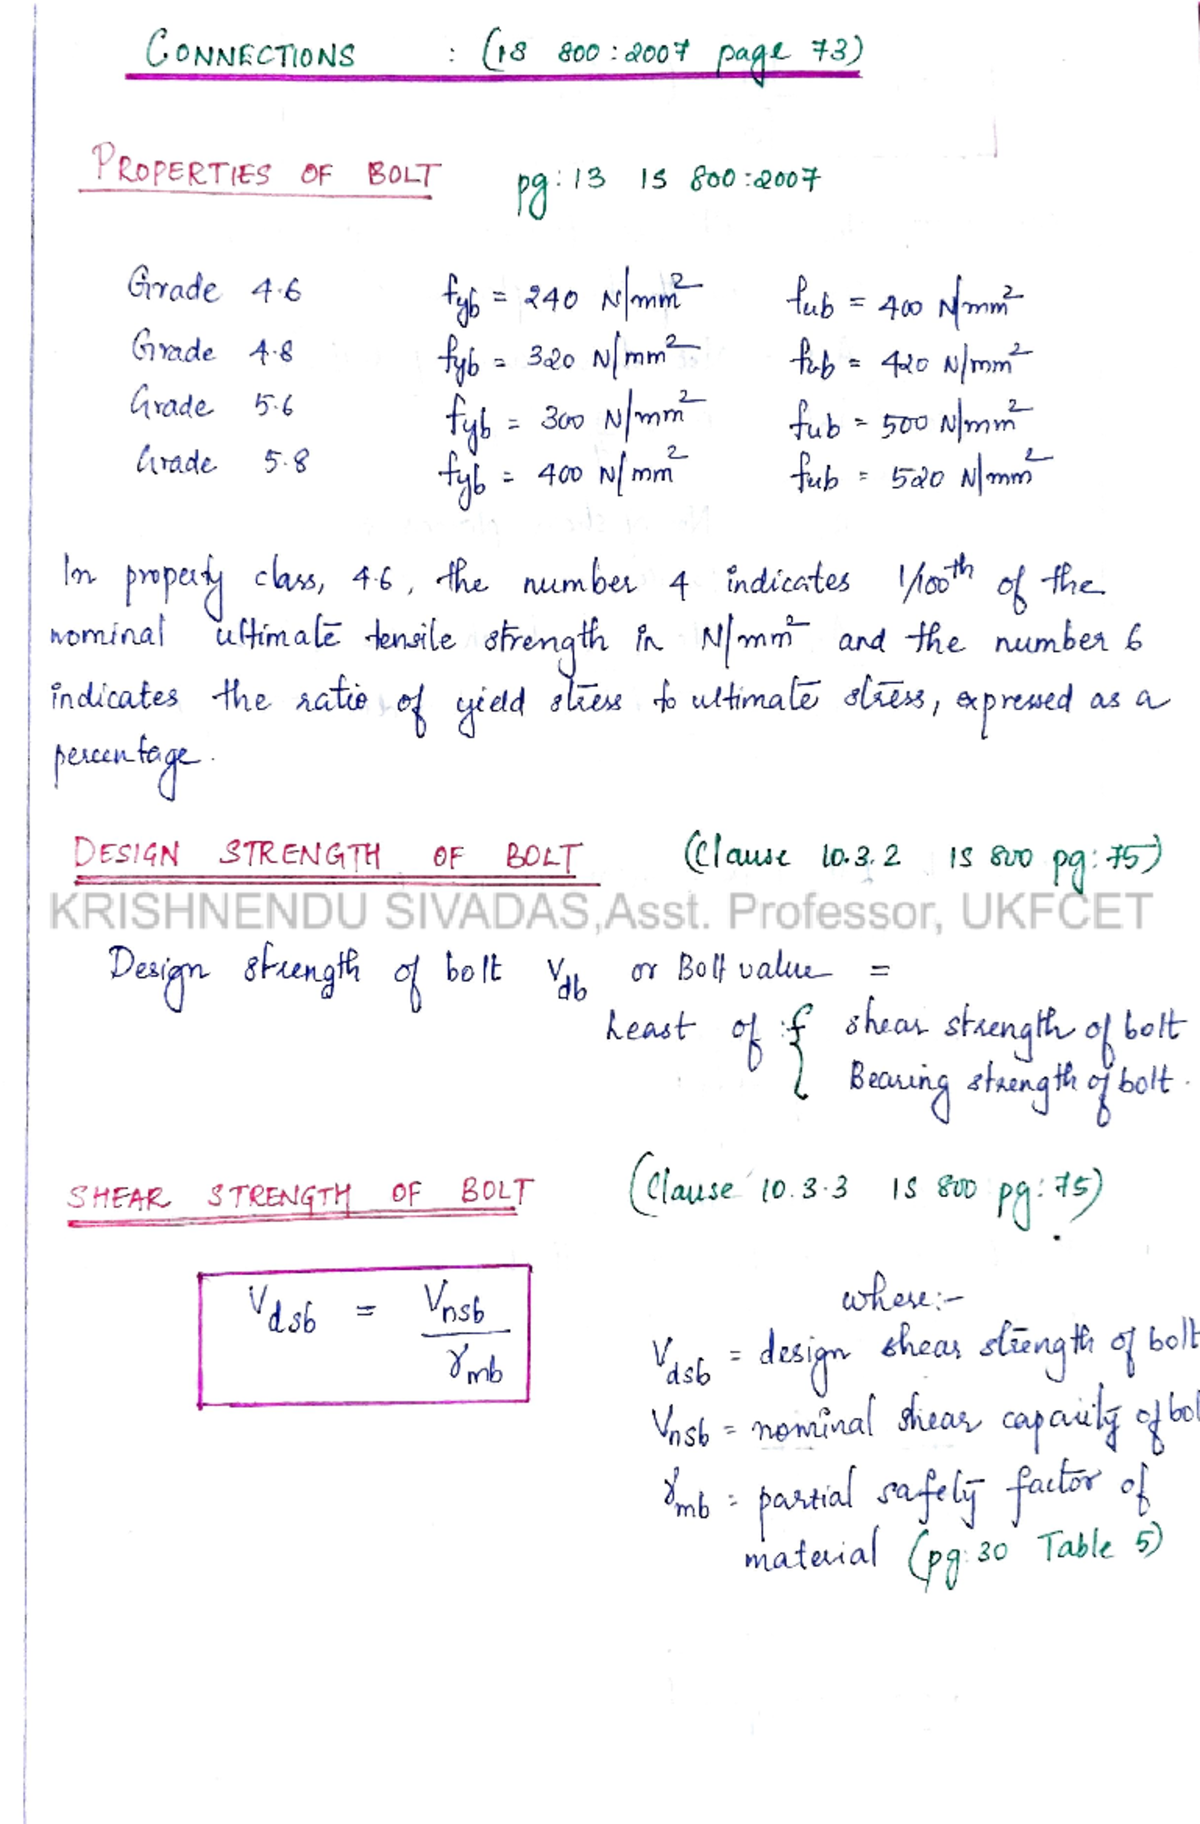 CONNECTIONS : (IS 800:2007 page 73)
PROPERTIES OF BOLT pg:13 IS 800:2007
Grade 4.6 fyb = 240 N/mm² fub = 400 N/mm²
Grade 4.8 fyb = 320 N/mm² fub = 420 N/mm²
Grade 5.6 fyb = 300 N/mm² fub = 500 N/mm²
Grade 5.8 fyb = 400 N/mm² fub = 520 N/mm²
In property class, 4.6, the number 4 indicates 1/100th of the
nominal ultimate tensile strength in N/mm² and the number 6
indicates the ratio of yield stress to ultimate stress, expressed as a
percentage.
DESIGN STRENGTH OF BOLT (Clause 10.3.2 IS 800 pg:75)
KRISHNENDU SIVADAS,Asst. Professor, UKFCET
Design strength of bolt Vdb or Bolt value =
Least of :{ shear strength of bolt
Bearing strength of bolt.
SHEAR STRENGTH OF BOLT (Clause 10.3.3 IS 800 pg:75)
Vdsb = Vnsb / γmb
where:-
Vdsb = design shear strength of bolt
Vnsb = nominal shear capacity of bol
γmb = partial safety factor of
material (pg:30 Table 5)